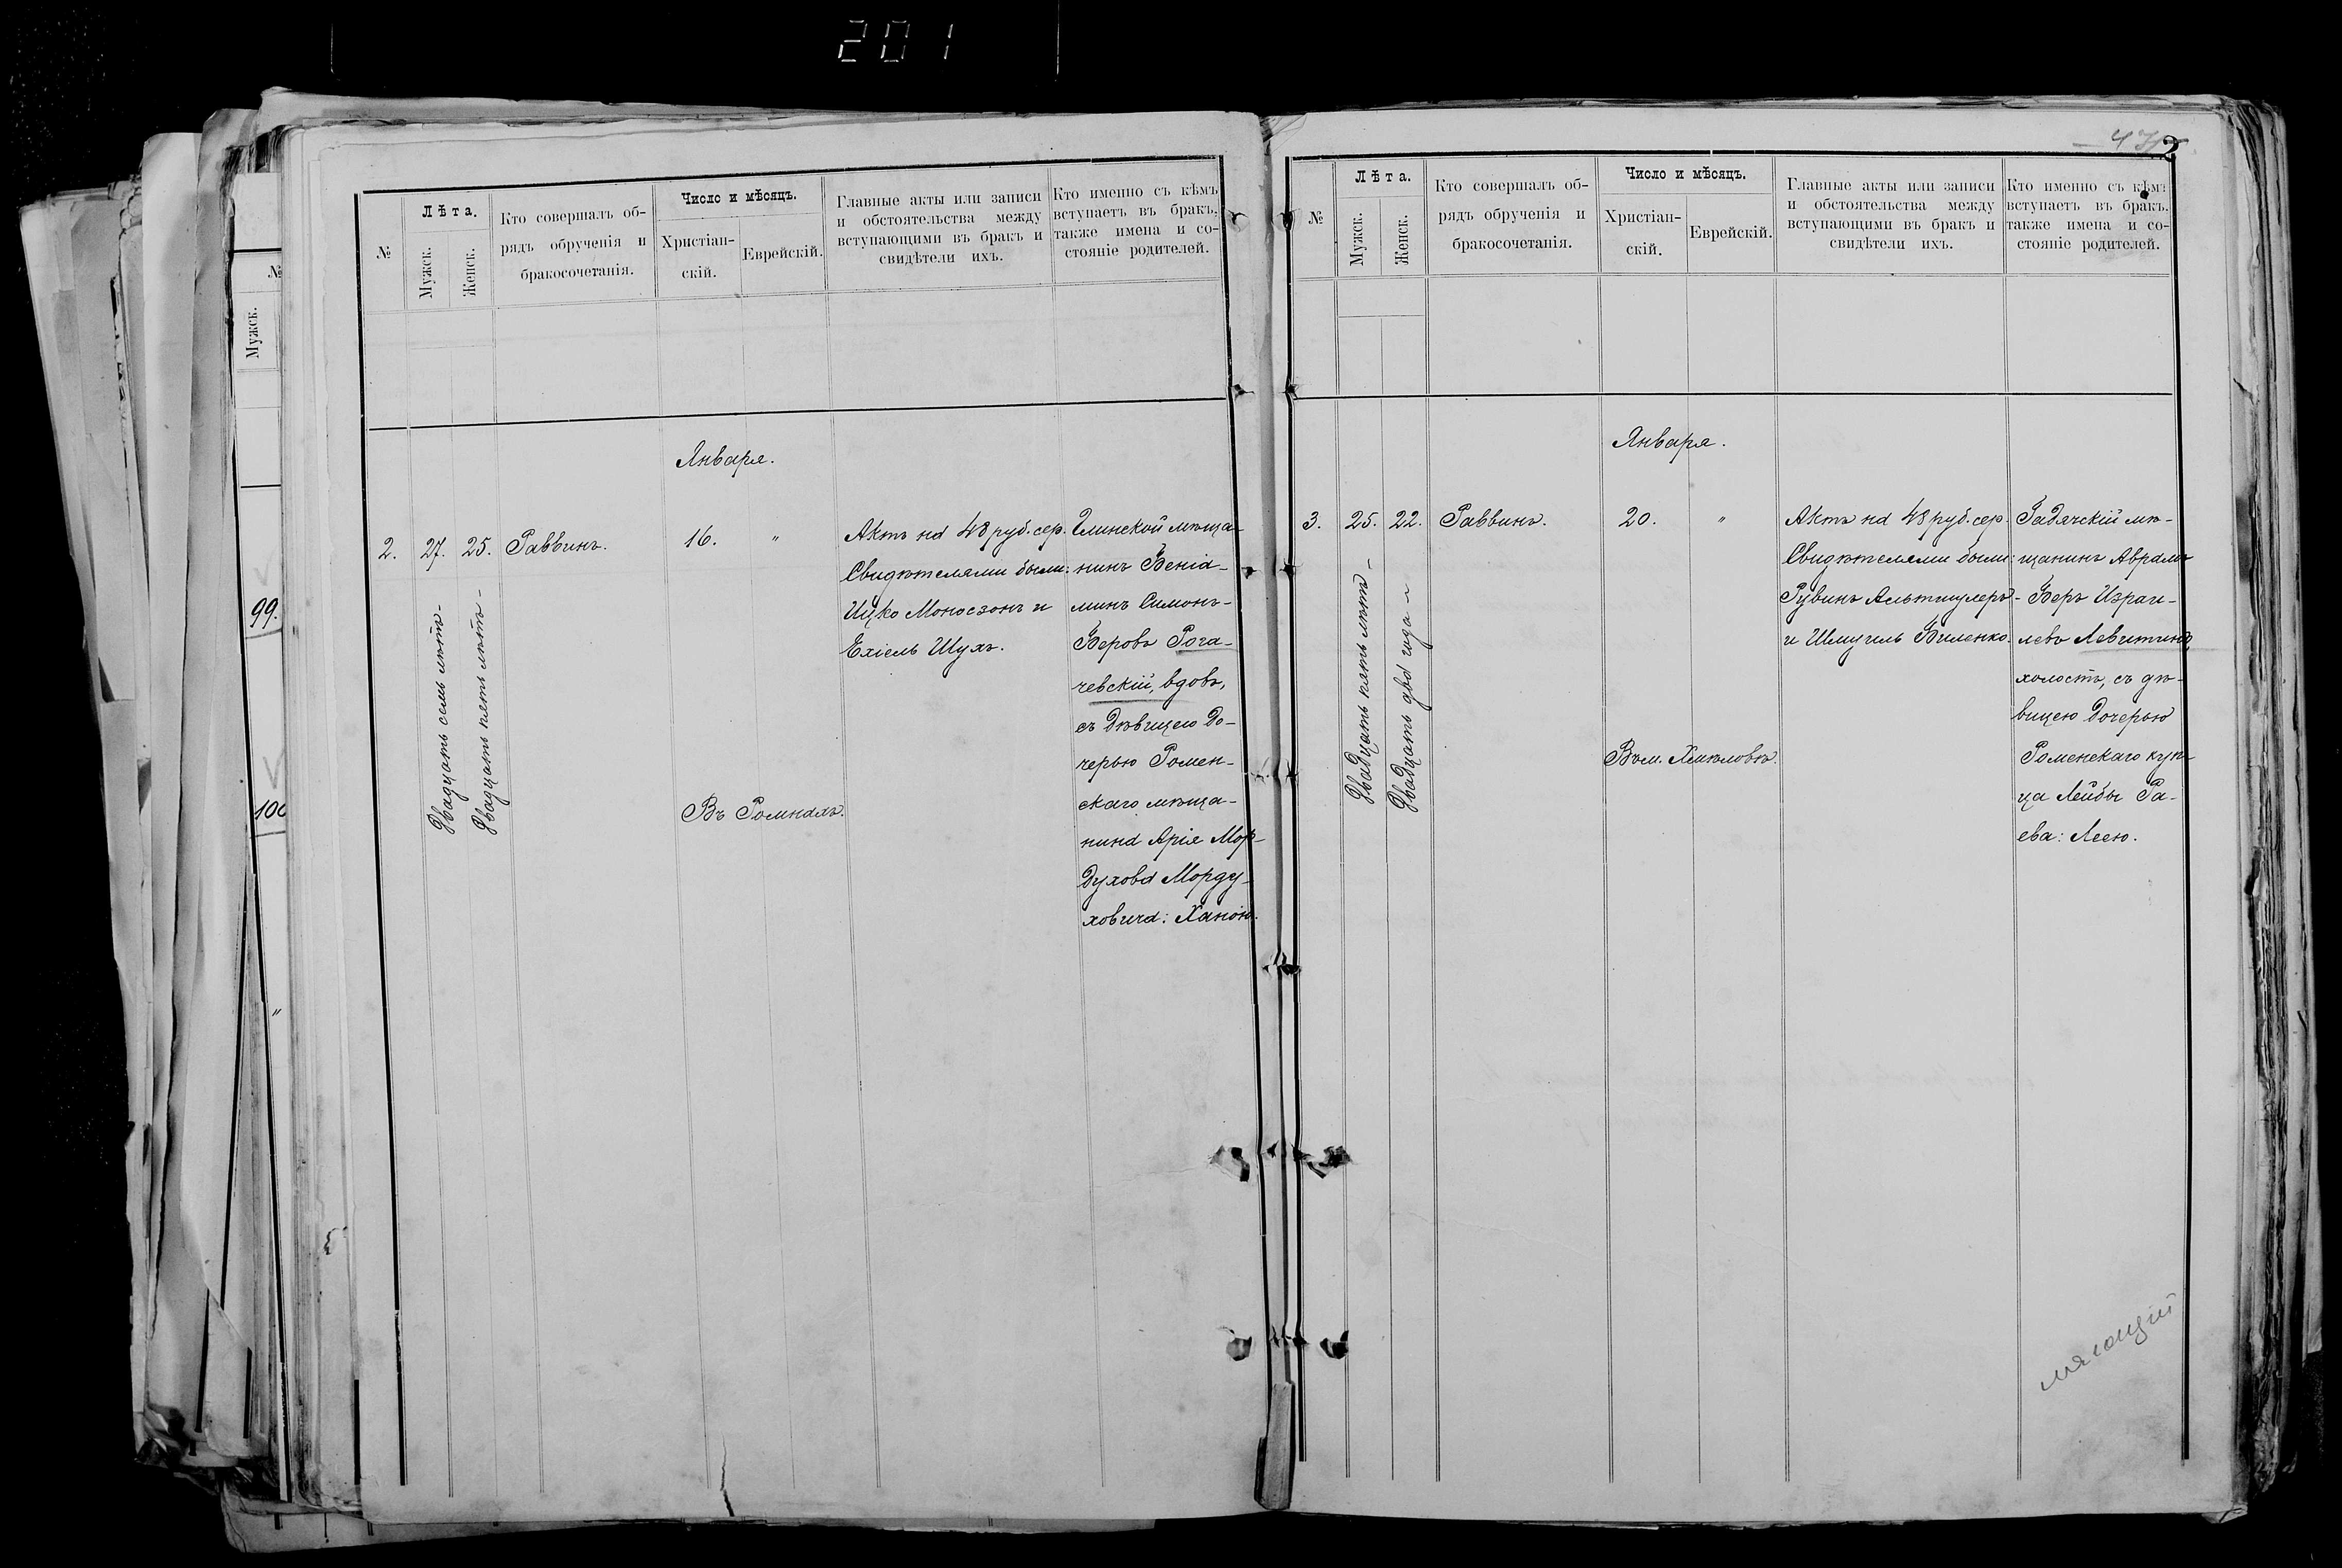 201
№
Мужск.
99.
100
"
№
Лѣта.
Мужск.
Женск.
Кто совершалъ об-
рядъ обрученія и
бракосочетанія.
Число и мѣсяцъ.
Христіан-
скій.
Еврейскій.
Главные акты или записи
и обстоятельства между
вступающими въ бракъ и
свидѣтели ихъ.
Кто именно съ кѣмъ
вступаетъ въ бракъ,
также имена и со-
стояніе родителей.
Января.
2.
27.
Двадцать семь лѣтъ -
25.
Двадцать пять лѣтъ -
Раввинъ.
16.
"
Въ Ромнахъ.
Актъ на 48 руб. сер.
Свидѣтелями были:
Ицко Моносзонъ и
Ехіель Шухъ.
Глинской мѣща-
нинъ Веніа-
минъ Симонъ-
Беровъ Рога-
чевскій, вдовъ,
съ дѣвицею до-
черью Ромен-
скаго мѣща-
нина Арія Мор-
духова Морду-
ховича: Ханою.
47
2
№
Лѣта.
Мужск.
Женск.
Кто совершалъ об-
рядъ обрученія и
бракосочетанія.
Число и мѣсяцъ.
Христіан-
скій.
Еврейскій.
Главные акты или записи
и обстоятельства между
вступающими въ бракъ и
свидѣтели ихъ.
Кто именно съ кѣмъ
вступаетъ въ бракъ,
также имена и со-
стояніе родителей.
Января.
3.
25.
Двадцать пять лѣтъ -
22.
Двадцать два года -
Раввинъ.
20.
"
Въ м. Хмѣловѣ.
Актъ на 48 руб. сер.
Свидѣтелями были:
Рувинъ Альтшулеръ
и Шмуиль Виленко.
Гадячскій мѣ-
щанинъ Абрамъ
- Беръ Израи-
левъ Левитинъ,
холостъ, съ дѣ-
вицею дочерью
Роменскаго куп-
ца Лейбы Ра-
ева: Леею.